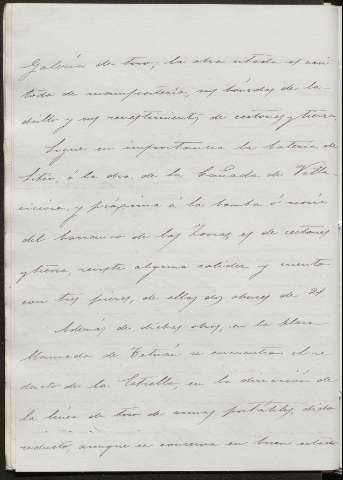 Galería de tiro; la obra citada es cons
truida de mampostería, sus bóvedas de la-
drillo y sus revestimientos de cestones y tierra
Sigue en importancia la batería de
Sitio, á la dra. de la Cañada de Villa
viciosa, y próxima á la bomba ó noria
del barranco de las Zorras, es de cestones
y tierra, reviste alguna solidez y cuenta
con tres piezas, de ellas dos obuses de 21
Además de dichas obras, en la plaza
llamada de Tetuán se encuentra el re-
ducto de la Estrella, en la dirección de
la línea de tiro de armas portátiles, dicho
reducto, aunque se conserva en buen estado